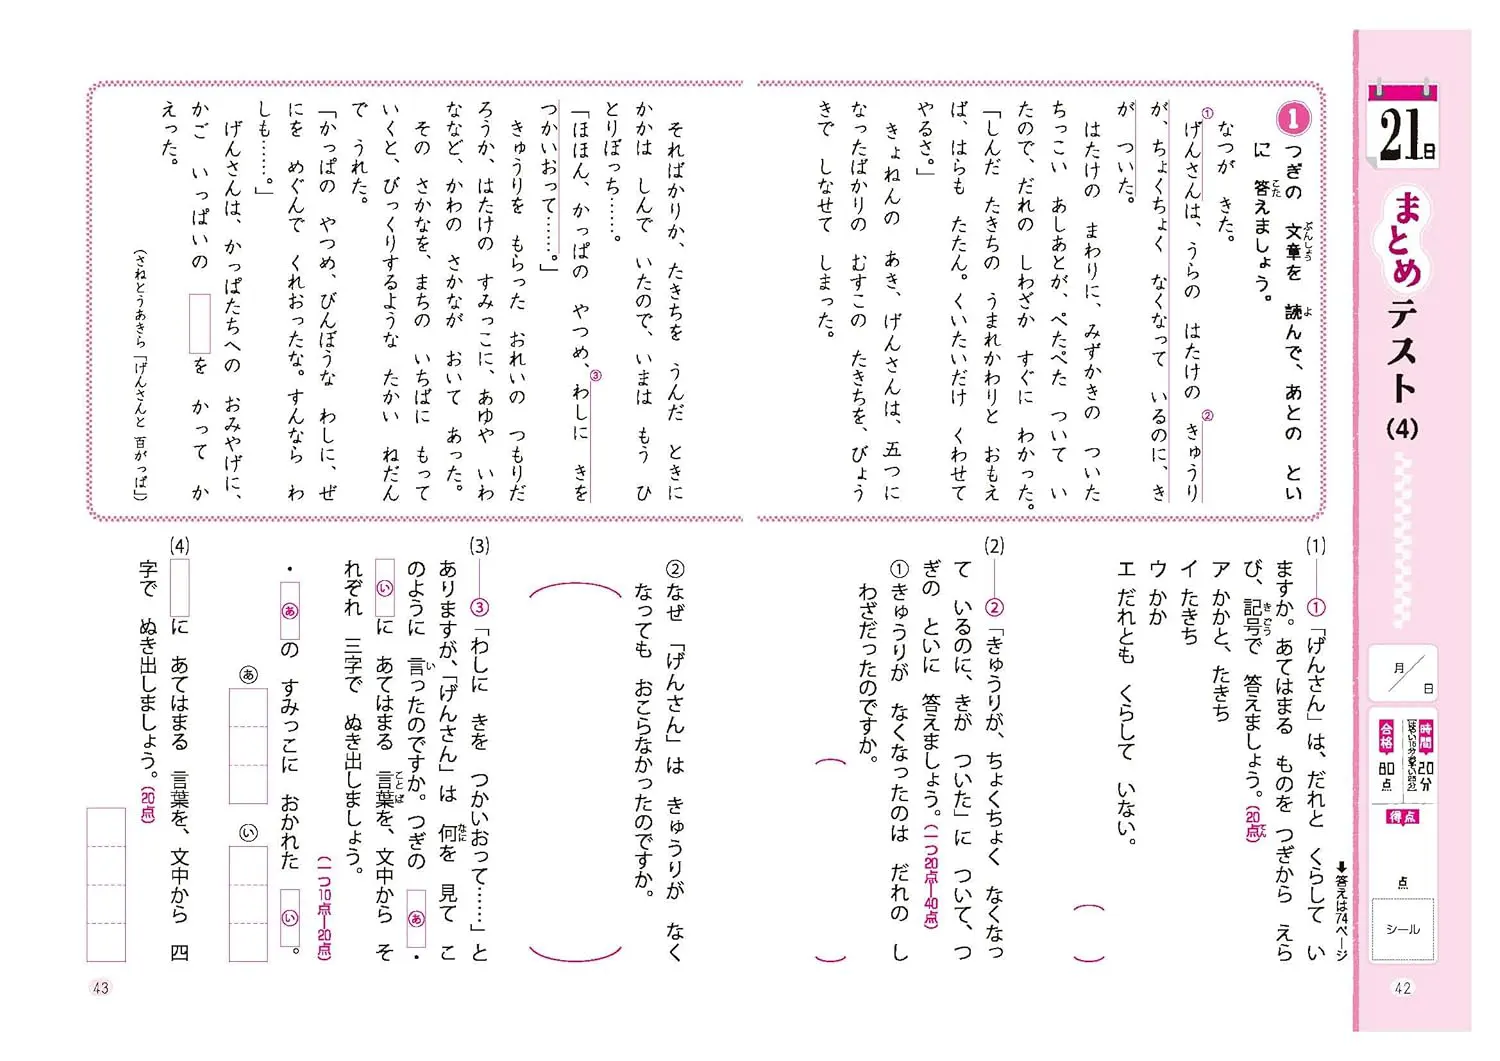 21日
まとめテスト(4)
月/日
時間 20分
合格 80点
得点
点
シール
42
➡答えは74ページ
1 つぎの 文章を 読んで、あとの とい
に 答えましょう。
なつが きた。
①げんさんは、うらの はたけの ②きゅうり
が、ちょくちょく なくなって いるのに、き
が ついた。
はたけの まわりに、みずかきの ついた
ちっこい あしあとが、ぺたぺた ついて い
たので、だれの しわざか すぐに わかった。
「しんだ たきちの うまれかわりと おもえ
ば、はらも たたん。くいたいだけ くわせて
やるさ。」
きょねんの あき、げんさんは、五つに
なったばかりの むすこの たきちを、びょう
きで しなせて しまった。
そればかりか、たきちを うんだ ときに
かかは しんで いたので、いまは もう ひ
とりぼっち……。
「ほほん、かっぱの やつめ、③わしに きを
つかいおって……。」
きゅうりを もらった おれいの つもりだ
ろうか、はたけの すみっこに、あゆや いわ
ななど、かわの さかなが おいて あった。
その さかなを、まちの いちばに もって
いくと、びっくりするような たかい ねだん
で うれた。
「かっぱの やつめ、びんぼうな わしに、ぜ
にを めぐんで くれおったな。すんなら わ
しも……。」
げんさんは、かっぱたちへの おみやげに、
かご いっぱいの を かって か
えった。
(さねとうあきら「げんさんと 百がっぱ」)
(1) ――①「げんさん」は、だれと くらして い
ますか。あてはまる ものを つぎから えら
び、記号で 答えましょう。(20点)
ア かかと、たきち
イ たきち
ウ かか
エ だれとも くらして いない。
(2) ――②「きゅうりが、ちょくちょく なくなっ
て いるのに、きが ついた」に ついて、つ
ぎの といに 答えましょう。(一つ20点―40点)
① きゅうりが なくなったのは だれの し
わざだったのですか。
② なぜ「げんさん」は きゅうりが なく
なっても おこらなかったのですか。
(3) ――③「わしに きを つかいおって……」と
ありますが、「げんさん」は 何を 見て こ
のように 言ったのですか。つぎの あ・
いに あてはまる 言葉を、文中から そ
れぞれ 三字で ぬき出しましょう。
(一つ10点―20点)
・あの すみっこに おかれた い。
あ
い
(4) に あてはまる 言葉を、文中から 四
字で ぬき出しましょう。(20点)
43